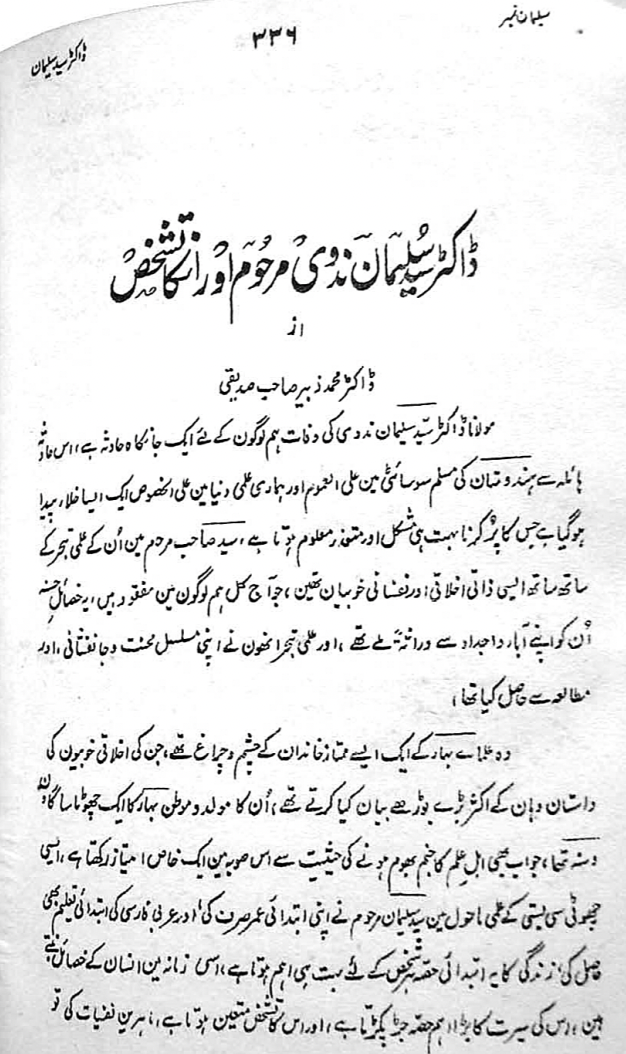 سلیمان نمبر
۳۳۶
ڈاکٹر سید سلیمان
ڈاکٹر سید سلیمان ندوی مرحوم اور انکا تشخص
از
ڈاکٹر محمد زبیر صاحب صدیقی
مولانا ڈاکٹر سید سلیمان ندوی کی وفات ہم لوگون کے لئے ایک جانکاہ حادثہ ہے، اس حادثۂ
ہائلہ سے ہندوستان کی مسلم سوسائٹی مین علی العموم اور ہماری علمی دنیا مین علی الخصوص ایک ایسا خلا پیدا
ہوگیا ہے جس کا پُر کرنا بہت ہی مشکل اور متعذر معلوم ہوتا ہے، سید صاحب مرحوم مین اُن کے علمی تبحر کے
ساتھ ساتھ ایسی ذاتی اخلاقی اور نفسانی خوبیان تھین، جو آج کل ہم لوگون مین مفقود ہیں، یہ خصائل حسنہ
اُن کو اپنے آبار و اجداد سے وراثۃً ملے تھے، اور علمی تبحر انھون نے اپنی مسلسل محنت و جانفشانی، اور
مطالعہ سے حاصل کیا تھا،
وہ علماے بہار کے ایک ایسے ممتاز خاندان کے چشم و چراغ تھے، جن کی اخلاقی خوبیون کی
داستان وہان کے اکثر بڑے بوڑھے بیان کیا کرتے تھے، اُن کا مولد و موطن بہار کا ایک چھوٹا سا گاؤن
دسنہ تھا، جو اب بھی اہلِ علم کا جنم بھوم ہونے کی حیثیت سے اس صوبہ مین ایک خاص امتیاز رکھتا ہے، ایسی
چھوٹی سی بستی کے علمی ماحول مین سید سلیمان مرحوم نے اپنی ابتدائی عمر صرف کی، اور عربی فارسی کی ابتدائی تعلیم بھی
حاصل کی، زندگی کا یہ ابتدائی حصّہ ہر شخص کے لئے بہت ہی اہم ہوتا ہے، اسی زمانہ مین انسان کے خصائل بنتے
ہین، اس کی سیرت کا بڑا اہم حصّہ جڑ پکڑتا ہے، اور اس کا تشخص متعین ہوتا ہے، ماہرین نفسیات کی تو